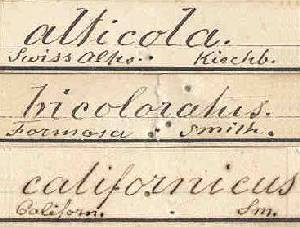 alticola.
Swiss Alps. Kiechb.
bicoloratus.
Formosa Smith.
californicus
Californ. Sm.